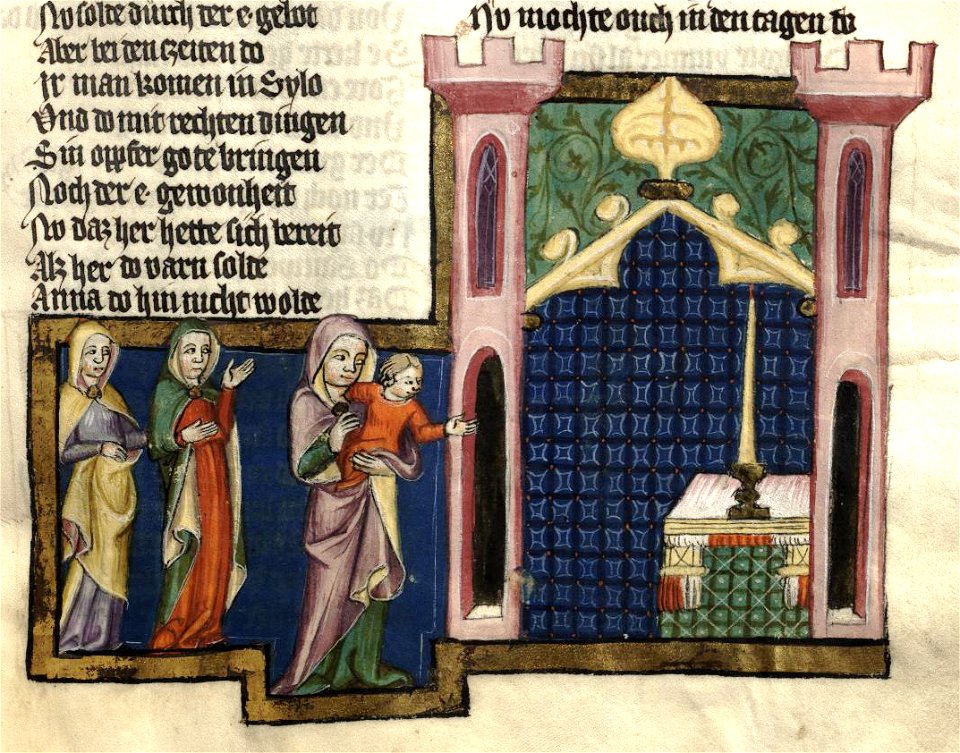 Nv solde durch der e gelot
Aber bei den czeiten do
Ir man komen in Sylo
Vnd do mit rechten dingen
Sin oppfer gote bringen
Noch der e gewonheit
Nv daz her hette sich bereit
Alz her do varn solde
Anna do hin nicht wolde
Nv mochte ouch in den tagen do